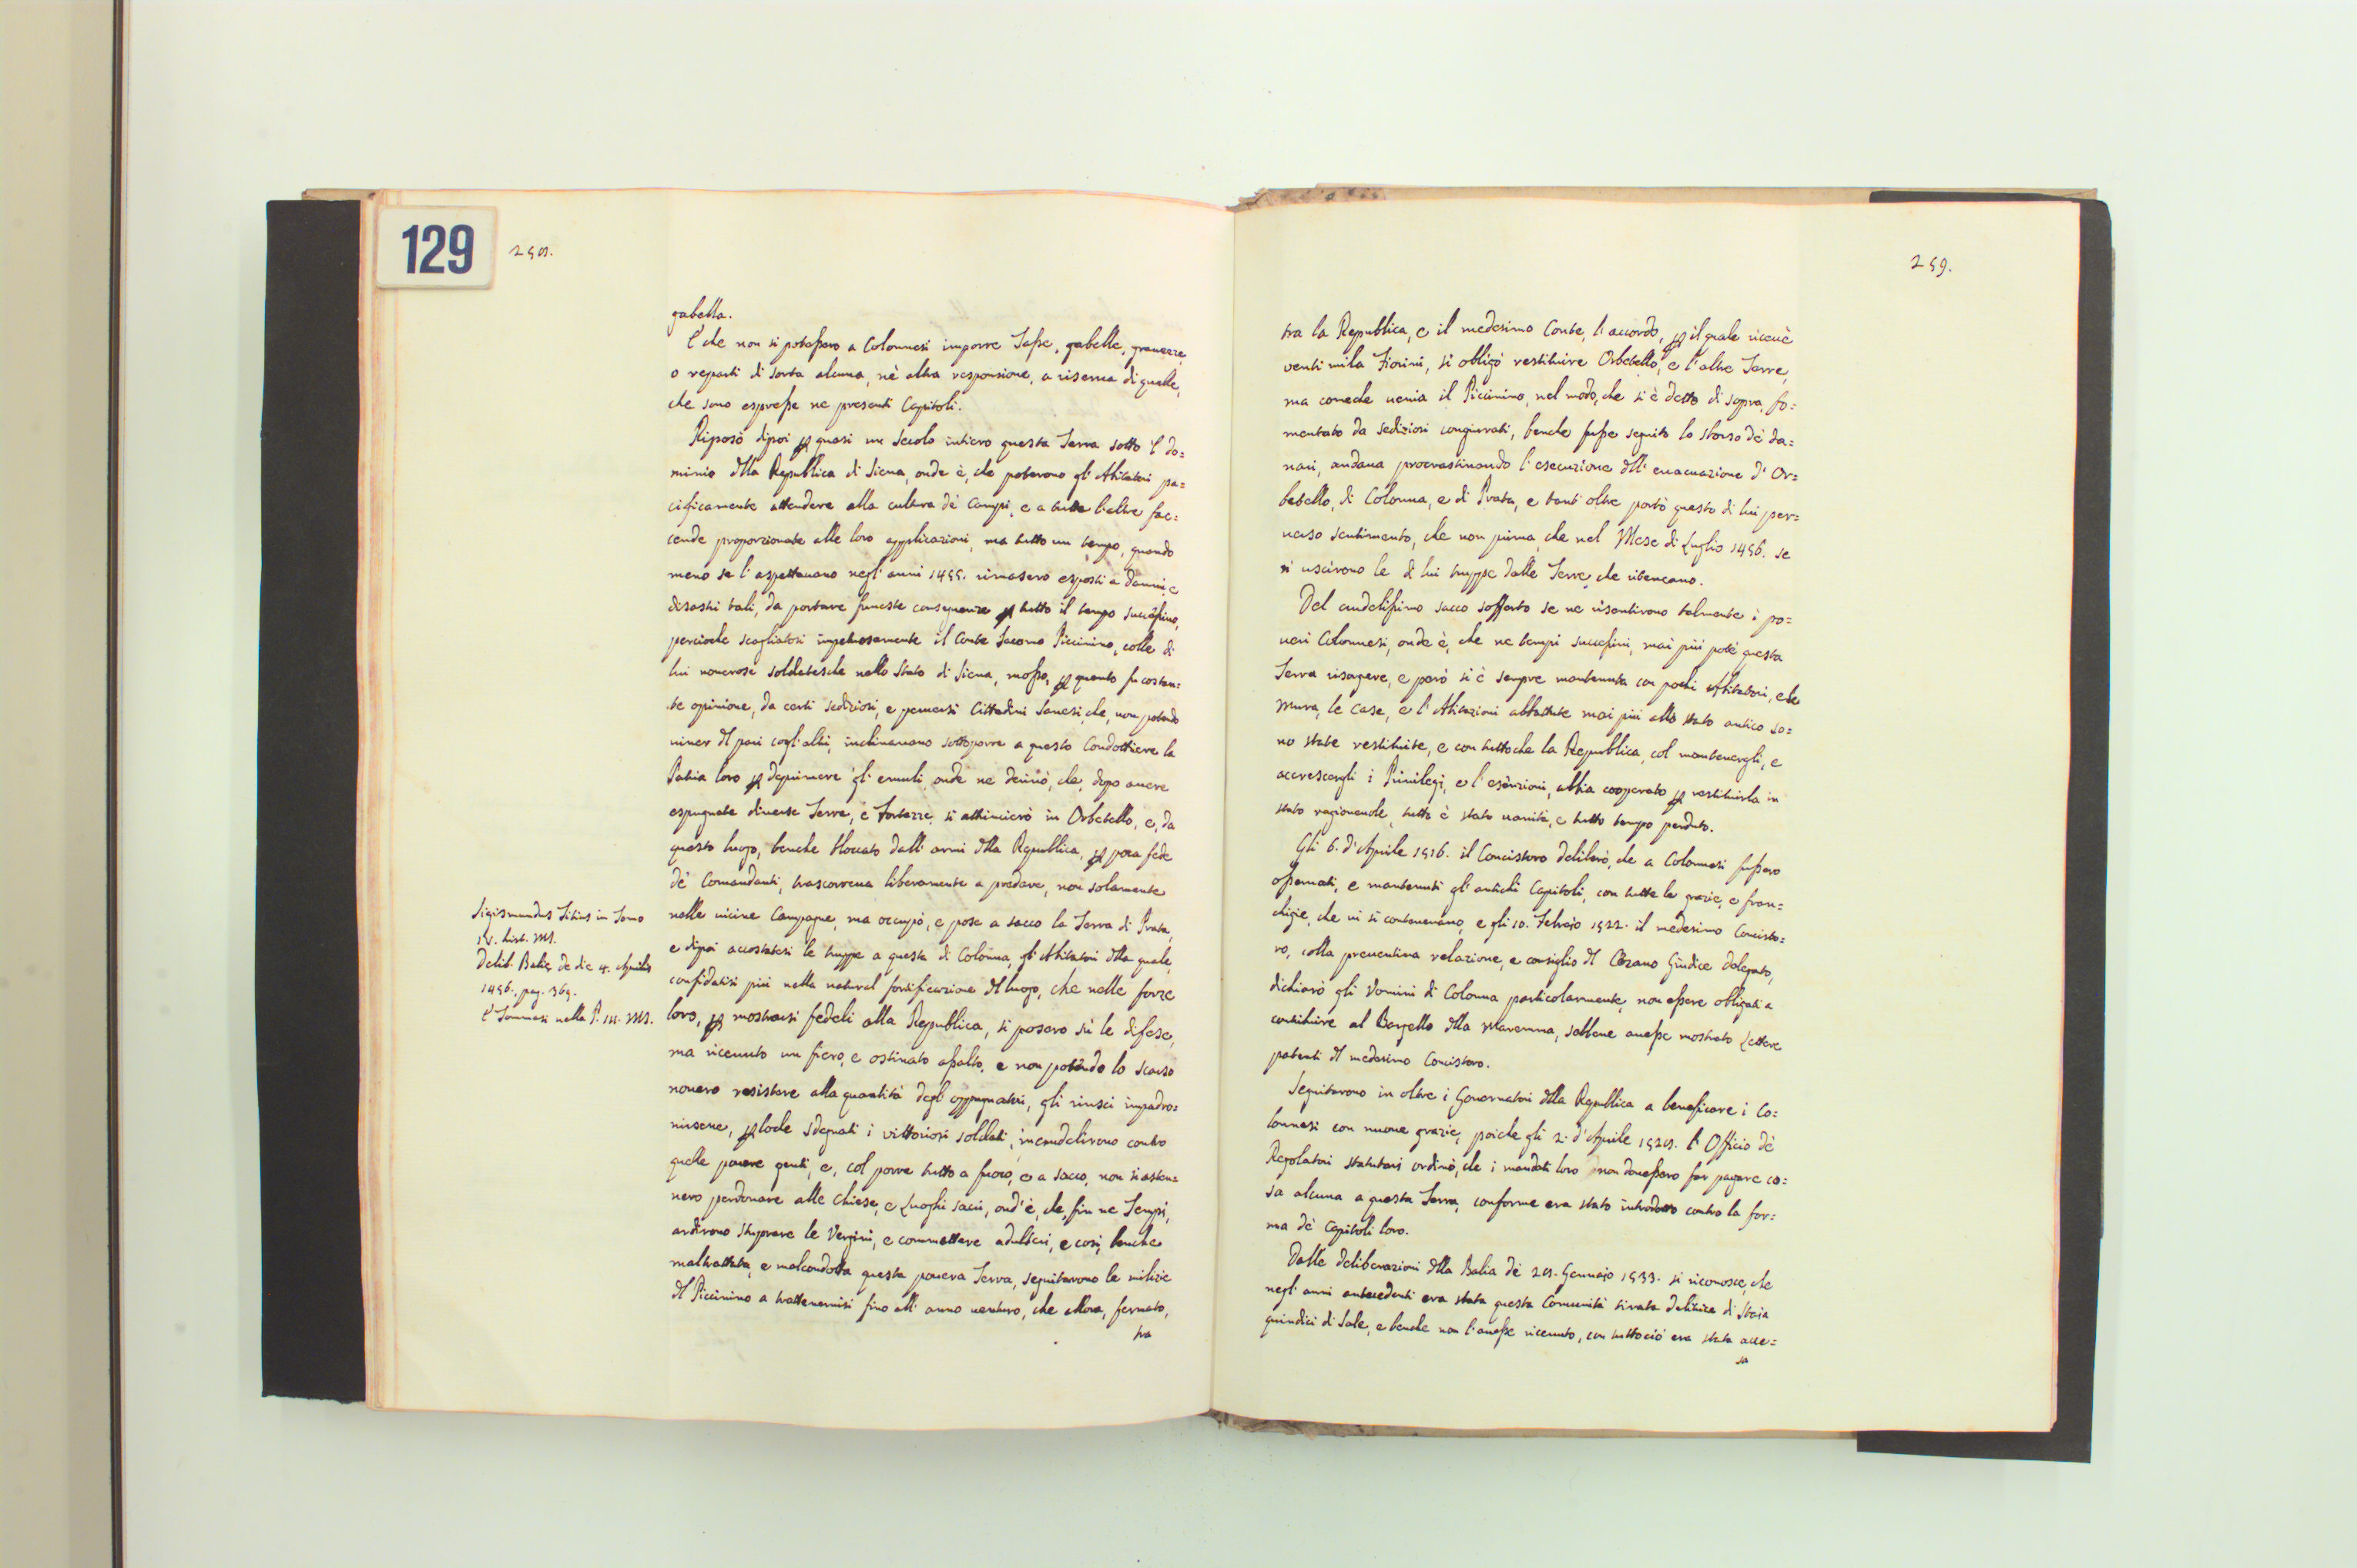 129
258.
gabella.
E che non si potessero a Colonnesi imporre Tasse, gabelle, grauezze,
o reparti di sorta alcuna, nè altra responsione, a riserua di quelle,
che sono espresse ne presenti Capitoli.
Riposò dipoi p quasi un secolo intiero questa Terra sotto 'l do=
minio dlla Republica di Siena, onde è, che poterono gl'Abitatori pa=
cificamente attendere alla cultura de' Campi, e a tutte l'altre fac=
cende proporzionate alle loro applicazioni, ma tutto un tempo, quando
meno se l'aspettauano negl'anni 1455. rimasero esposti a danni, e
disastri tali, da portare funeste conseguenze p tutto il tempo succesiuo,
percioche scagliatosi impetuosamente il Conte Jacomo Piccinino, colle di
lui nomerose soldatesche nello Stato di Siena, mosso, p quanto fu costan=
te opinione, da certi sediziosi, e peruersi Cittadini Sanesi, che, non potendo
uiuer dl pari cogl'altri, inclinauano sottoporre a questo Condottiere la
Patria loro p deprimere gl'emuli, onde ne deriuò, che, dopo auere
espugnate diuerse Terre, e Fortezze, si attrincierò in Orbetello, e, da
questo luogo, benche bloccato dall'armi dlla Republica, p poca fede
de' Comandanti, trascorreua liberamente a predare, non solamente
nelle uicine Campagne, ma occupò, e pose a sacco la Terra di Prata,
e dipoi accostatesi le truppe a questa di Colonna, gl'Abitatori dlla quale,
confidatisi più nella natural fortificazione dl luogo, che nelle forze
loro, p mostrarsi fedeli alla Republica, si posero sù le difese,
ma riceuuto un fiero, e ostinato assalto, e non potendo lo scarso
nomero resistere alla quantità degl'oppugnatori, gli riuscì impadro=
nirsene, ploche sdegnati i vittoriosi soldati, incrudelirono contro
quelle pouere genti, e, col porre tutto a fuoco, e a sacco, non si asten=
nero perdonare alle Chiese, e Luoghi sacri, ond'è, che, fin ne Tempi,
ardirono stuprare le Vergini, e commettere adulteri, e così, benche
maltrattata, e malcondotta questa pouera Terra, seguitarono le milizie
dl Piccinino a trattenersi fino all'anno uenturo, che allora, fermato,
tra
Sigismundus Titius in Tomo
IV. hist. MS.
Delib. Baliæ de die 4. Aprilis
1456. pag. 369.
E' Tommasi nella P. III. MS.
259.
tra la Republica, e il medesimo Conte, l'accordo, p il quale riceuè
venti mila Fiorini, si obligò restituire Orbetello, e l'altre Terre,
ma comeche uenia il Piccinino, nel modo, che si è detto di sopra, fo=
mentato da sediziosi congiurati, benche fusse seguito lo sborso de' da=
nari, andaua procrastinando l'esecuzione dll'euacuazione d'Or=
betello, di Colonna, e di Prata, e tant'oltre portò questo di lui per=
uerso sentimento, che non prima, che nel Mese di Luglio 1456. se
n'uscirono le di lui truppe dalle Terre, che riteneano.
Del crudelissimo sacco sofferto se ne risentirono talmente i po=
ueri Colonnesi, onde è, che ne tempi succesiui, mai più potè questa
Terra risorgere, e però si è sempre mantenuta con pochi Abitatori, e le
Mura, le Case, e l'Abitazioni abbattute mai più allo stato antico so=
no state restituite, e con tuttoche la Republica, col mantenergli, e
accrescergli i Priuilegi, e l'esenzioni, abbia cooperato p restituirla in
stato ragioneuole, tutto è stato uanità, e tutto tempo perduto.
Gli 6. d'Aprile 1516. il Concistoro deliberò, che a Colonnesi fussero
osseruati, e mantenuti gl'antichi Capitoli, con tutte le grazie, e fran=
chigie, che ui si conteneuano, e gli 10. Febraio 1522. il medesimo Concisto=
ro, colla preuentiua relazione, e consiglio dl Giudice delegato,
dichiarò gli Vomini di Colonna particolarmente, non essere obligati a
contribuire al Bargello dlla Maremma, sebbene auesse mostrato Lettere
patenti dl medesimo Concistoro.
Seguitarono in oltre i Gouernatori dlla Republica a beneficare i Co=
lonnesi con nuoue grazie, poiche gli 2. d'Aprile 1528. l'Officio de'
Regolatori statutari ordinò, che i mandati loro non douessero far pagare co=
sa alcuna a questa Terra, conforme era stato introdotto contro la for=
ma de' Capitoli loro.
Dalle deliberazioni dlla Balia de' 28. Gennaio 1533. si riconosce, che
negl'anni antecedenti era stata questa Comunità tirata debitrice di Staia
quindici di Sale, e benche non l'auesse riceuuto, con tuttociò era stata acce=
sa